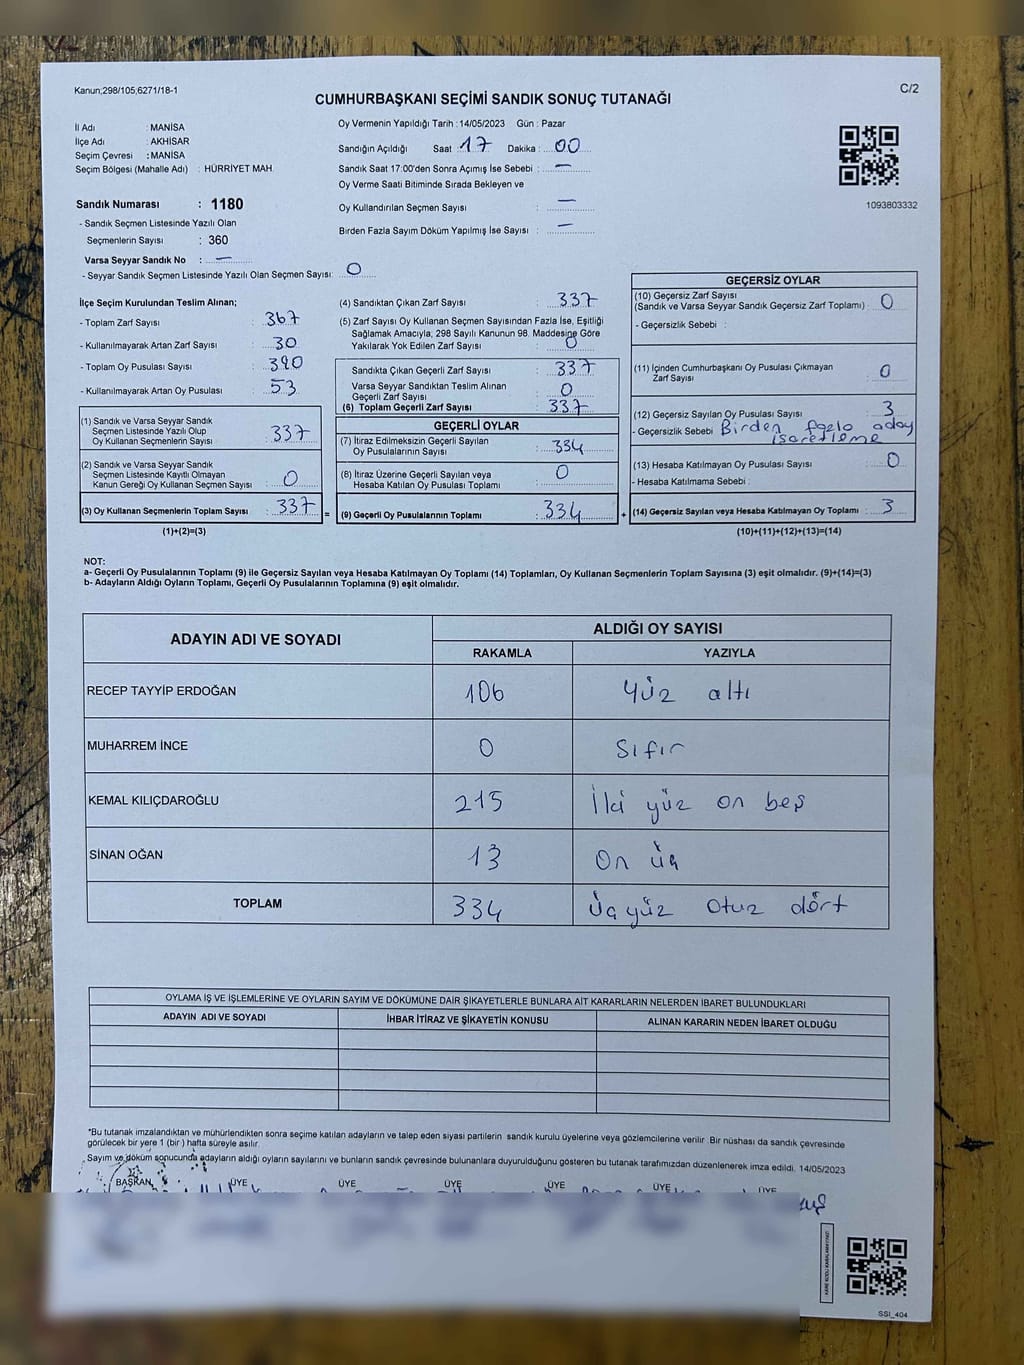 Kanun;298/105;6271/18-1
C/2
CUMHURBAŞKANI SEÇİMİ SANDIK SONUÇ TUTANAĞI
İl Adı : MANİSA
İlçe Adı : AKHİSAR
Seçim Çevresi : MANİSA
Seçim Bölgesi (Mahalle Adı) : HÜRRİYET MAH.
Oy Vermenin Yapıldığı Tarih : 14/05/2023 Gün : Pazar
Sandığın Açıldığı Saat : 17 Dakika : 00
Sandık Saat 17:00'den Sonra Açımış İse Sebebi : —
Oy Verme Saati Bitiminde Sırada Bekleyen ve
Oy Kullandırılan Seçmen Sayısı : —
Birden Fazla Sayım Döküm Yapılmış İse Sayısı : —
1093803332
Sandık Numarası : 1180
- Sandık Seçmen Listesinde Yazılı Olan
Seçmenlerin Sayısı : 360
Varsa Seyyar Sandık No : —
- Seyyar Sandık Seçmen Listesinde Yazılı Olan Seçmen Sayısı: 0
İlçe Seçim Kurulundan Teslim Alınan;
- Toplam Zarf Sayısı : 367
- Kullanılmayarak Artan Zarf Sayısı : 30
- Toplam Oy Pusulası Sayısı : 390
- Kullanılmayarak Artan Oy Pusulası : 53
(1) Sandık ve Varsa Seyyar Sandık
Seçmen Listesinde Yazılı Olup
Oy Kullanan Seçmenlerin Sayısı : 337
(2) Sandık ve Varsa Seyyar Sandık
Seçmen Listesinde Kayıtlı Olmayan
Kanun Gereği Oy Kullanan Seçmen Sayısı : 0
(3) Oy Kullanan Seçmenlerin Toplam Sayısı : 337
(1)+(2)=(3)
=
(4) Sandıktan Çıkan Zarf Sayısı : 337
(5) Zarf Sayısı Oy Kullanan Seçmen Sayısından Fazla İse, Eşitliği
Sağlamak Amacıyla; 298 Sayılı Kanunun 98. Maddesine Göre
Yakılarak Yok Edilen Zarf Sayısı : 0
Sandıkta Çıkan Geçerli Zarf Sayısı : 337
Varsa Seyyar Sandıktan Teslim Alınan
Geçerli Zarf Sayısı : 0
(6) Toplam Geçerli Zarf Sayısı : 337
GEÇERLİ OYLAR
(7) İtiraz Edilmeksizin Geçerli Sayılan
Oy Pusulalarının Sayısı : 334
(8) İtiraz Üzerine Geçerli Sayılan veya
Hesaba Katılan Oy Pusulası Toplamı : 0
(9) Geçerli Oy Pusulalarının Toplamı : 334
+
GEÇERSİZ OYLAR
(10) Geçersiz Zarf Sayısı
(Sandık ve Varsa Seyyar Sandık Geçersiz Zarf Toplamı) : 0
- Geçersizlik Sebebi :
(11) İçinden Cumhurbaşkanı Oy Pusulası Çıkmayan
Zarf Sayısı : 0
(12) Geçersiz Sayılan Oy Pusulası Sayısı : 3
- Geçersizlik Sebebi : Birden fazla aday
işaretleme
(13) Hesaba Katılmayan Oy Pusulası Sayısı : 0
- Hesaba Katılmama Sebebi :
(14) Geçersiz Sayılan veya Hesaba Katılmayan Oy Toplamı : 3
(10)+(11)+(12)+(13)=(14)
NOT:
a- Geçerli Oy Pusulalarının Toplamı (9) ile Geçersiz Sayılan veya Hesaba Katılmayan Oy Toplamı (14) Toplamları, Oy Kullanan Seçmenlerin Toplam Sayısına (3) eşit olmalıdır. (9)+(14)=(3)
b- Adayların Aldığı Oyların Toplamı, Geçerli Oy Pusulalarının Toplamına (9) eşit olmalıdır.
ADAYIN ADI VE SOYADI ALDIĞI OY SAYISI
RAKAMLA YAZIYLA
RECEP TAYYİP ERDOĞAN 106 Yüz altı
MUHARREM İNCE 0 Sıfır
KEMAL KILIÇDAROĞLU 215 İki yüz on beş
SİNAN OĞAN 13 On üç
TOPLAM 334 üçyüz otuz dört
OYLAMA İŞ VE İŞLEMLERİNE VE OYLARIN SAYIM VE DÖKÜMÜNE DAİR ŞİKAYETLERLE BUNLARA AİT KARARLARIN NELERDEN İBARET BULUNDUKLARI
ADAYIN ADI VE SOYADI İHBAR İTİRAZ VE ŞİKAYETİN KONUSU ALINAN KARARIN NEDEN İBARET OLDUĞU
*Bu tutanak imzalandıktan ve mühürlendikten sonra seçime katılan adayların ve talep eden siyasi partilerin sandık kurulu üyelerine veya gözlemcilerine verilir. Bir nüshası da sandık çevresinde
görülecek bir yere 1 (bir) hafta süreyle asılır.
Sayım ve döküm sonucunda adayların aldığı oyların sayılarını ve bunların sandık çevresinde bulunanlara duyurulduğunu gösteren bu tutanak tarafımızdan düzenlenerek imza edildi. 14/05/2023
BAŞKAN ÜYE ÜYE ÜYE ÜYE ÜYE ÜYE
SSİ_404